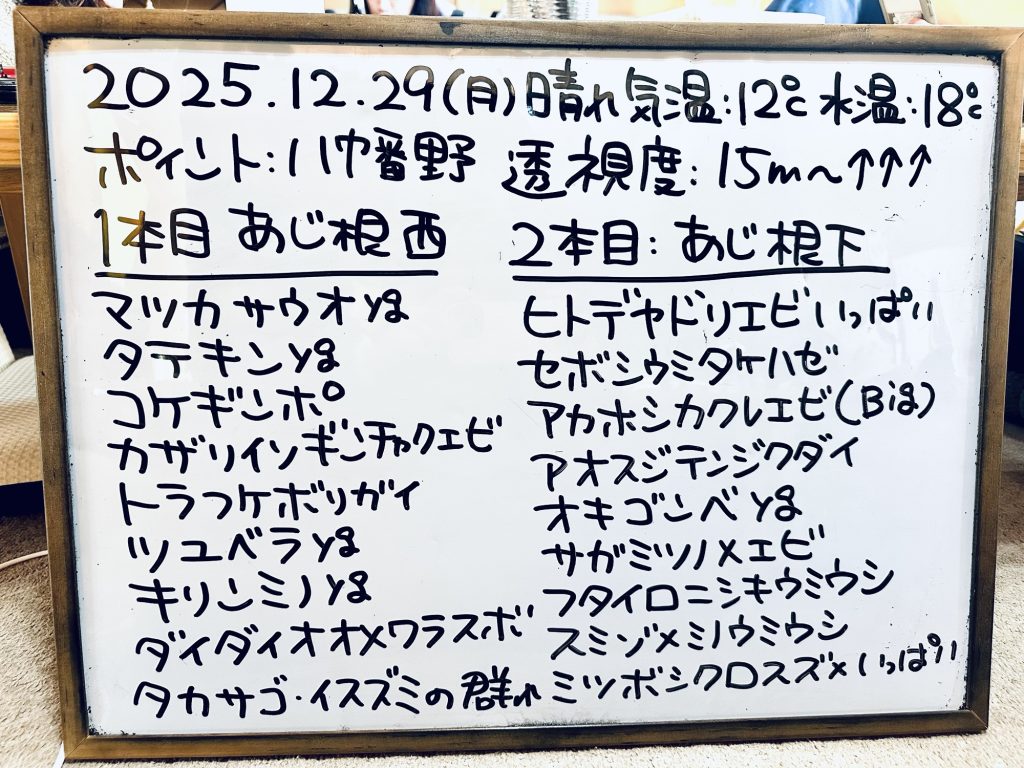 2025.12.29(月)晴れ 気温:12℃ 水温:18℃
ポイント:八幡野 透視度:15m〜↑↑↑
1本目 あじ根西
マツカサウオyg
タテキンyg
コケギンポ
カザリイソギンチャクエビ
トラフケボリガイ
ツユベラyg
キリンミノyg
ダイダイオオメワラスボ
タカサゴ・イスズミの群れ
2本目:あじ根下
ヒトデヤドリエビいっぱい
セボシウミタケハゼ
アカホシカクレエビ(Big)
アオスジテンジクダイ
オキゴンベyg
サガミツノメエビ
フタイロニシキウミウシ
スミゾメミノウミウシ
ミツボシクロスズメいっぱい